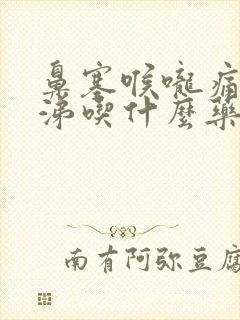 鼻塞喉嚨痛
涕喫什麼藥
南有阿弥豆腐